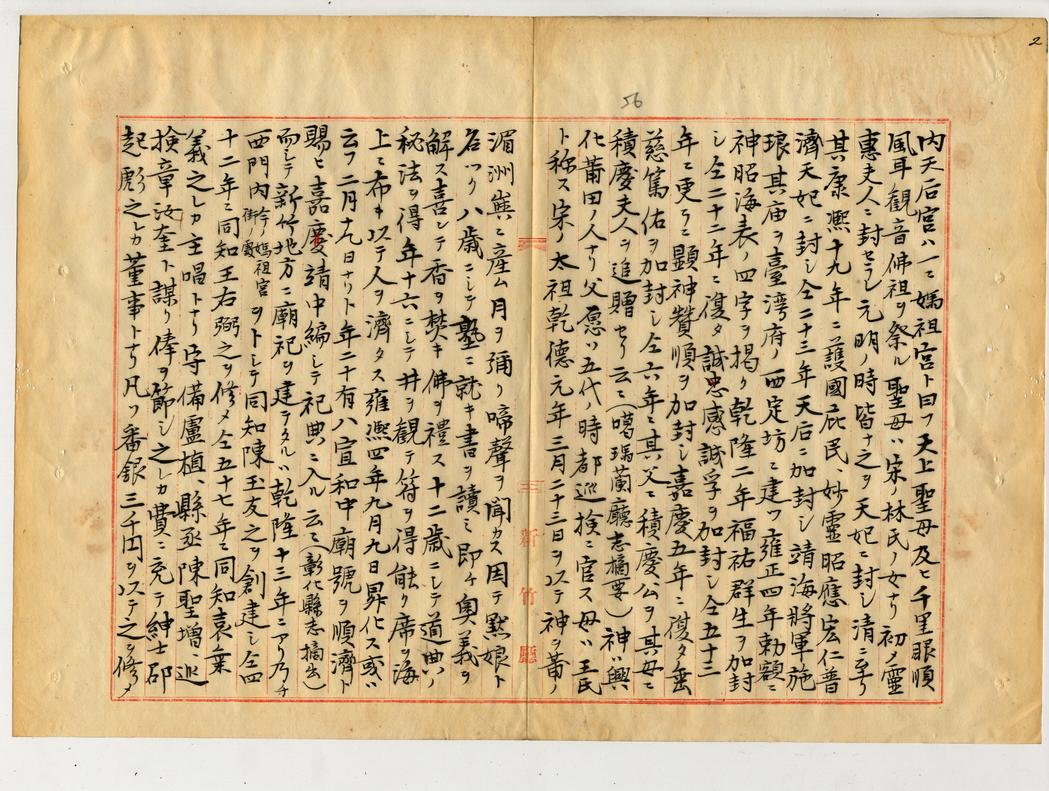 2
56
内天后宮ハ一ニ媽祖宮ト曰フ天上聖母及ヒ千里眼順
風耳観音佛祖ヲ祭ル聖母ハ宋ノ林氏ノ女ナリ初メ靈
惠夫人ニ封セラレ元明ノ時皆十之ヲ天妃ニ封シ清ニ至リ
其康熙十九年ニ護國庇民、妙靈昭應宏仁普
濟天妃ニ封シ仝二十三年天后ニ加封シ靖海將軍施
琅其庙ヲ臺湾府ノ西定坊ニ建ツ雍正四年勅額ニ
神昭海表ノ四字ヲ掲ケ乾隆二年福祐群生ヲ加封
シ仝二十二年ニ復タ誠忠感誠孚ヲ加封シ仝五十三
年ニ更ラニ顕神賛順ヲ加封シ嘉慶五年ニ復タ垂
慈篤佑ヲ加封シ仝六年ニ其父ニ積慶公ヲ其母ニ
積慶夫人ヲ追贈セリ云々(噶瑪蘭廳志摘要)神ハ興
化莆田ノ人ナリ父愿ハ五代ノ時都巡検ニ官ス母ハ王氏
ト称ス宋ノ太祖乾德元年三月二十三日ヲ以テ神ヲ莆ノ
三
新竹廳
湄洲嶼ニ産ム月ヲ彌リ啼聲ヲ聞カス因テ黙娘ト
名ツク八歳ニシテ塾ニ就キ書ヲ讀ミ即チ奥義ヲ
解ス喜ンテ香ヲ焚キ佛ヲ禮ス十二歳ニシテ道典ノ
秘法ヲ得年十六ニシテ井ヲ観テ符ヲ得能ク席ヲ海
上ニ布キ以テ人ヲ濟タス雍熙四年九月九日昇化ス或ハ
云フ二月十九日ナリト年二十有八宣和中廟號ヲ順濟ト
賜ヒ嘉慶靖中編シテ祀典ニ入ル云々(彰化縣志摘出)
而シテ新竹地方ニ廟祀ヲ建テタルハ乾隆十三年ニアリ乃チ
西門内今ノ媽祖宮街ノ處ヲトシテ同知陳玉友之ヲ創建シ仝四
十二年ニ同知王右弼之ヲ修メ仝五十七年ニ同知袁秉
義之レカ主唱トナリ守備盧植、縣丞陳聖增巡
検章汝奎ト謀リ俸ヲ節シ之レカ費ニ充テ紳士邵
起彪之レカ董事トナリ凡ソ番銀三千円ヲ以テ之ヲ修メ